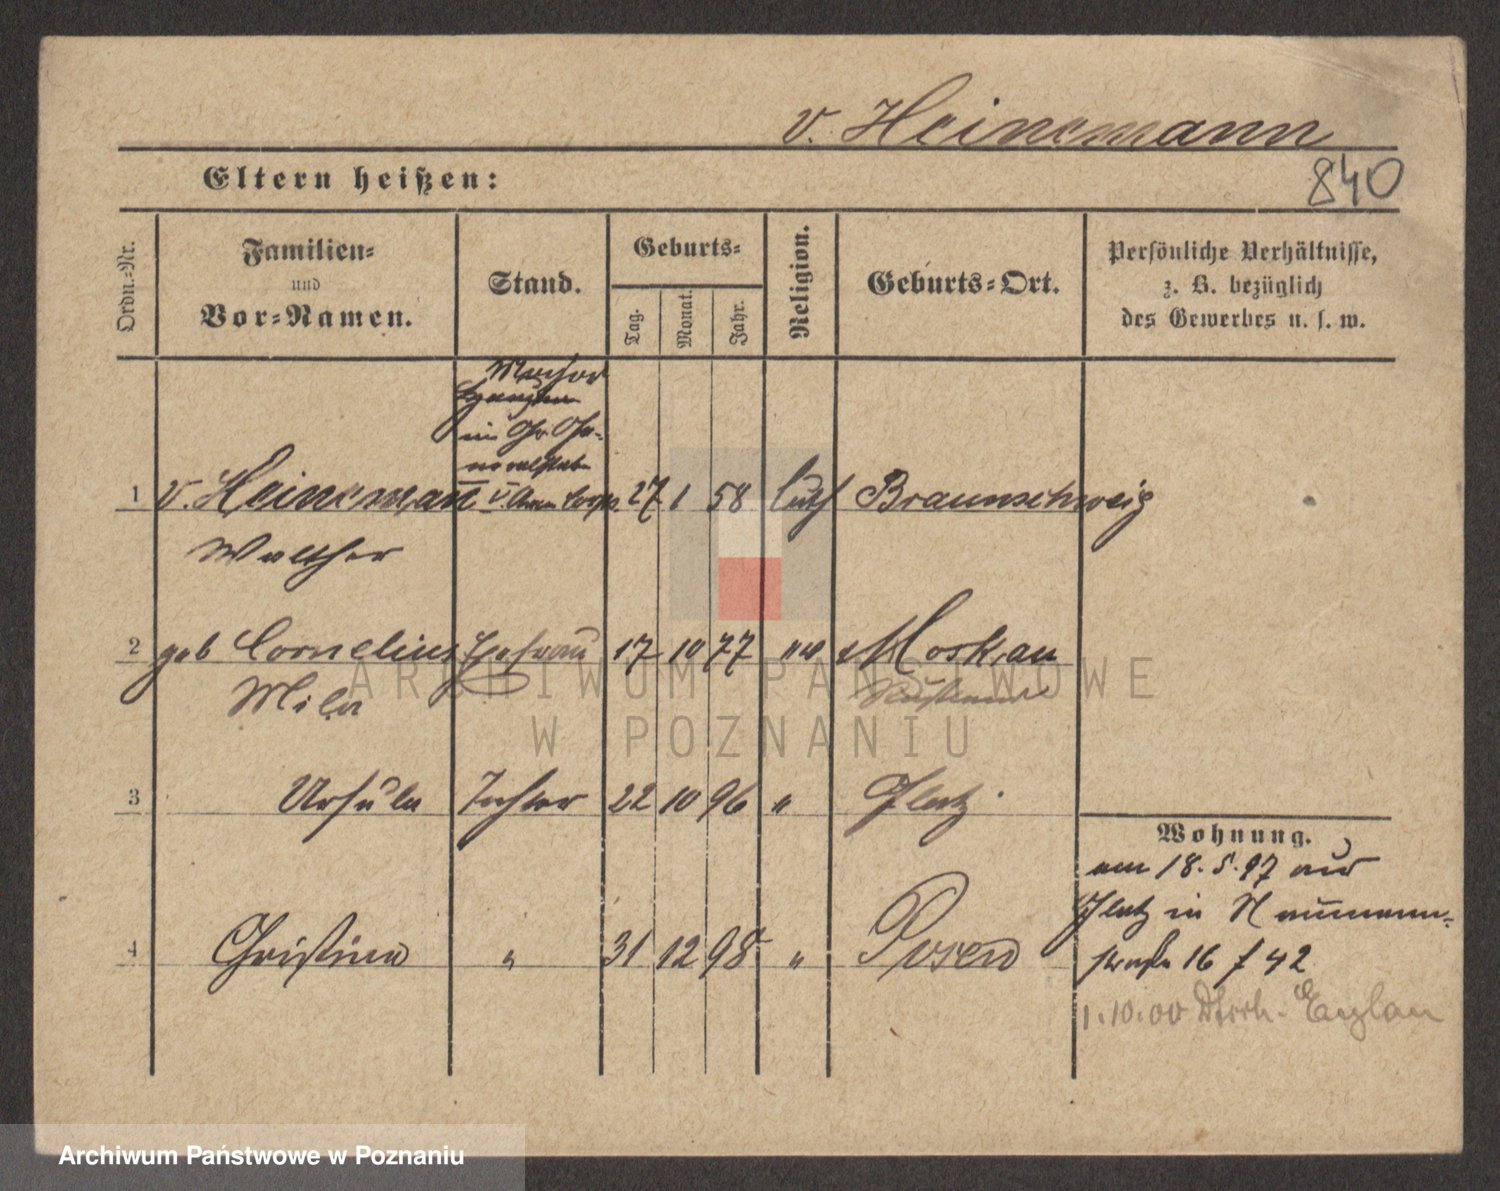 v. Heinemann
840
Eltern heißen:
Ordn.-Nr.
Familien-
und
Vor-Namen.
Stand.
Geburts-
Tag.
Monat.
Jahr.
Religion.
Geburts-Ort.
Persönliche Verhältnisse,
z. B. bezüglich
des Gewerbes u. s. w.
Major
im Gr. Ge-
neralstab
1 v. Heinemann V. Arm Corps 27 1 58 luth Braunschweig
Walther
2 geb Cornelius Ehefrau 17 10 77 " Moskau
Mila Rußland
3 Ursula Tochter 22 10 96 " Glatz
Wohnung.
am 18.5.97 aus
Glatz in Naumann-
4 Christina " 31 12 98 " Posen
straße 16 f 42
1.10.00 Dtsch. Eylau
ARCHIWUM PAŃSTWOWE
W POZNANIU
Archiwum Państwowe w Poznaniu